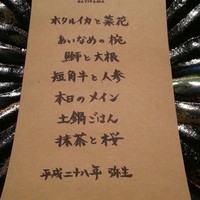 ホタルイカと菜花
あいなめの椀
鰤と大根
短角牛と人参
本日のメイン
土鍋ごはん
抹茶と桜
平成二十八年 弥生